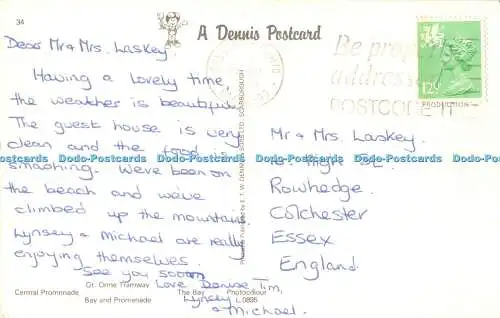 34
A Dennis Postcard
Dear Mr & Mrs. Laskey.
Having a lovely time,
the weather is beautiful.
The guest house is very
clean and the food is
smashing. We've been on
the beach and we've
climbed up the mountains
Lynsey & Michael are really
enjoying themselves.
See you soon
Love Denise, Tim,
Lynsey
& Michael.
Be prop
address
POSTCODE IT
12½
PRODUCTION
Mr & Mrs. Laskey.
High St.
Rowhedge.
Colchester
Essex
England.
Dodo-Postcards Dodo-Postcards Dodo-Postcards Dodo-Postcards Dodo-Postcards Dodo-Postcards
Central Promenade
Gt. Orme Tramway
Bay and Promenade
The Bay
Photocolour
L0895